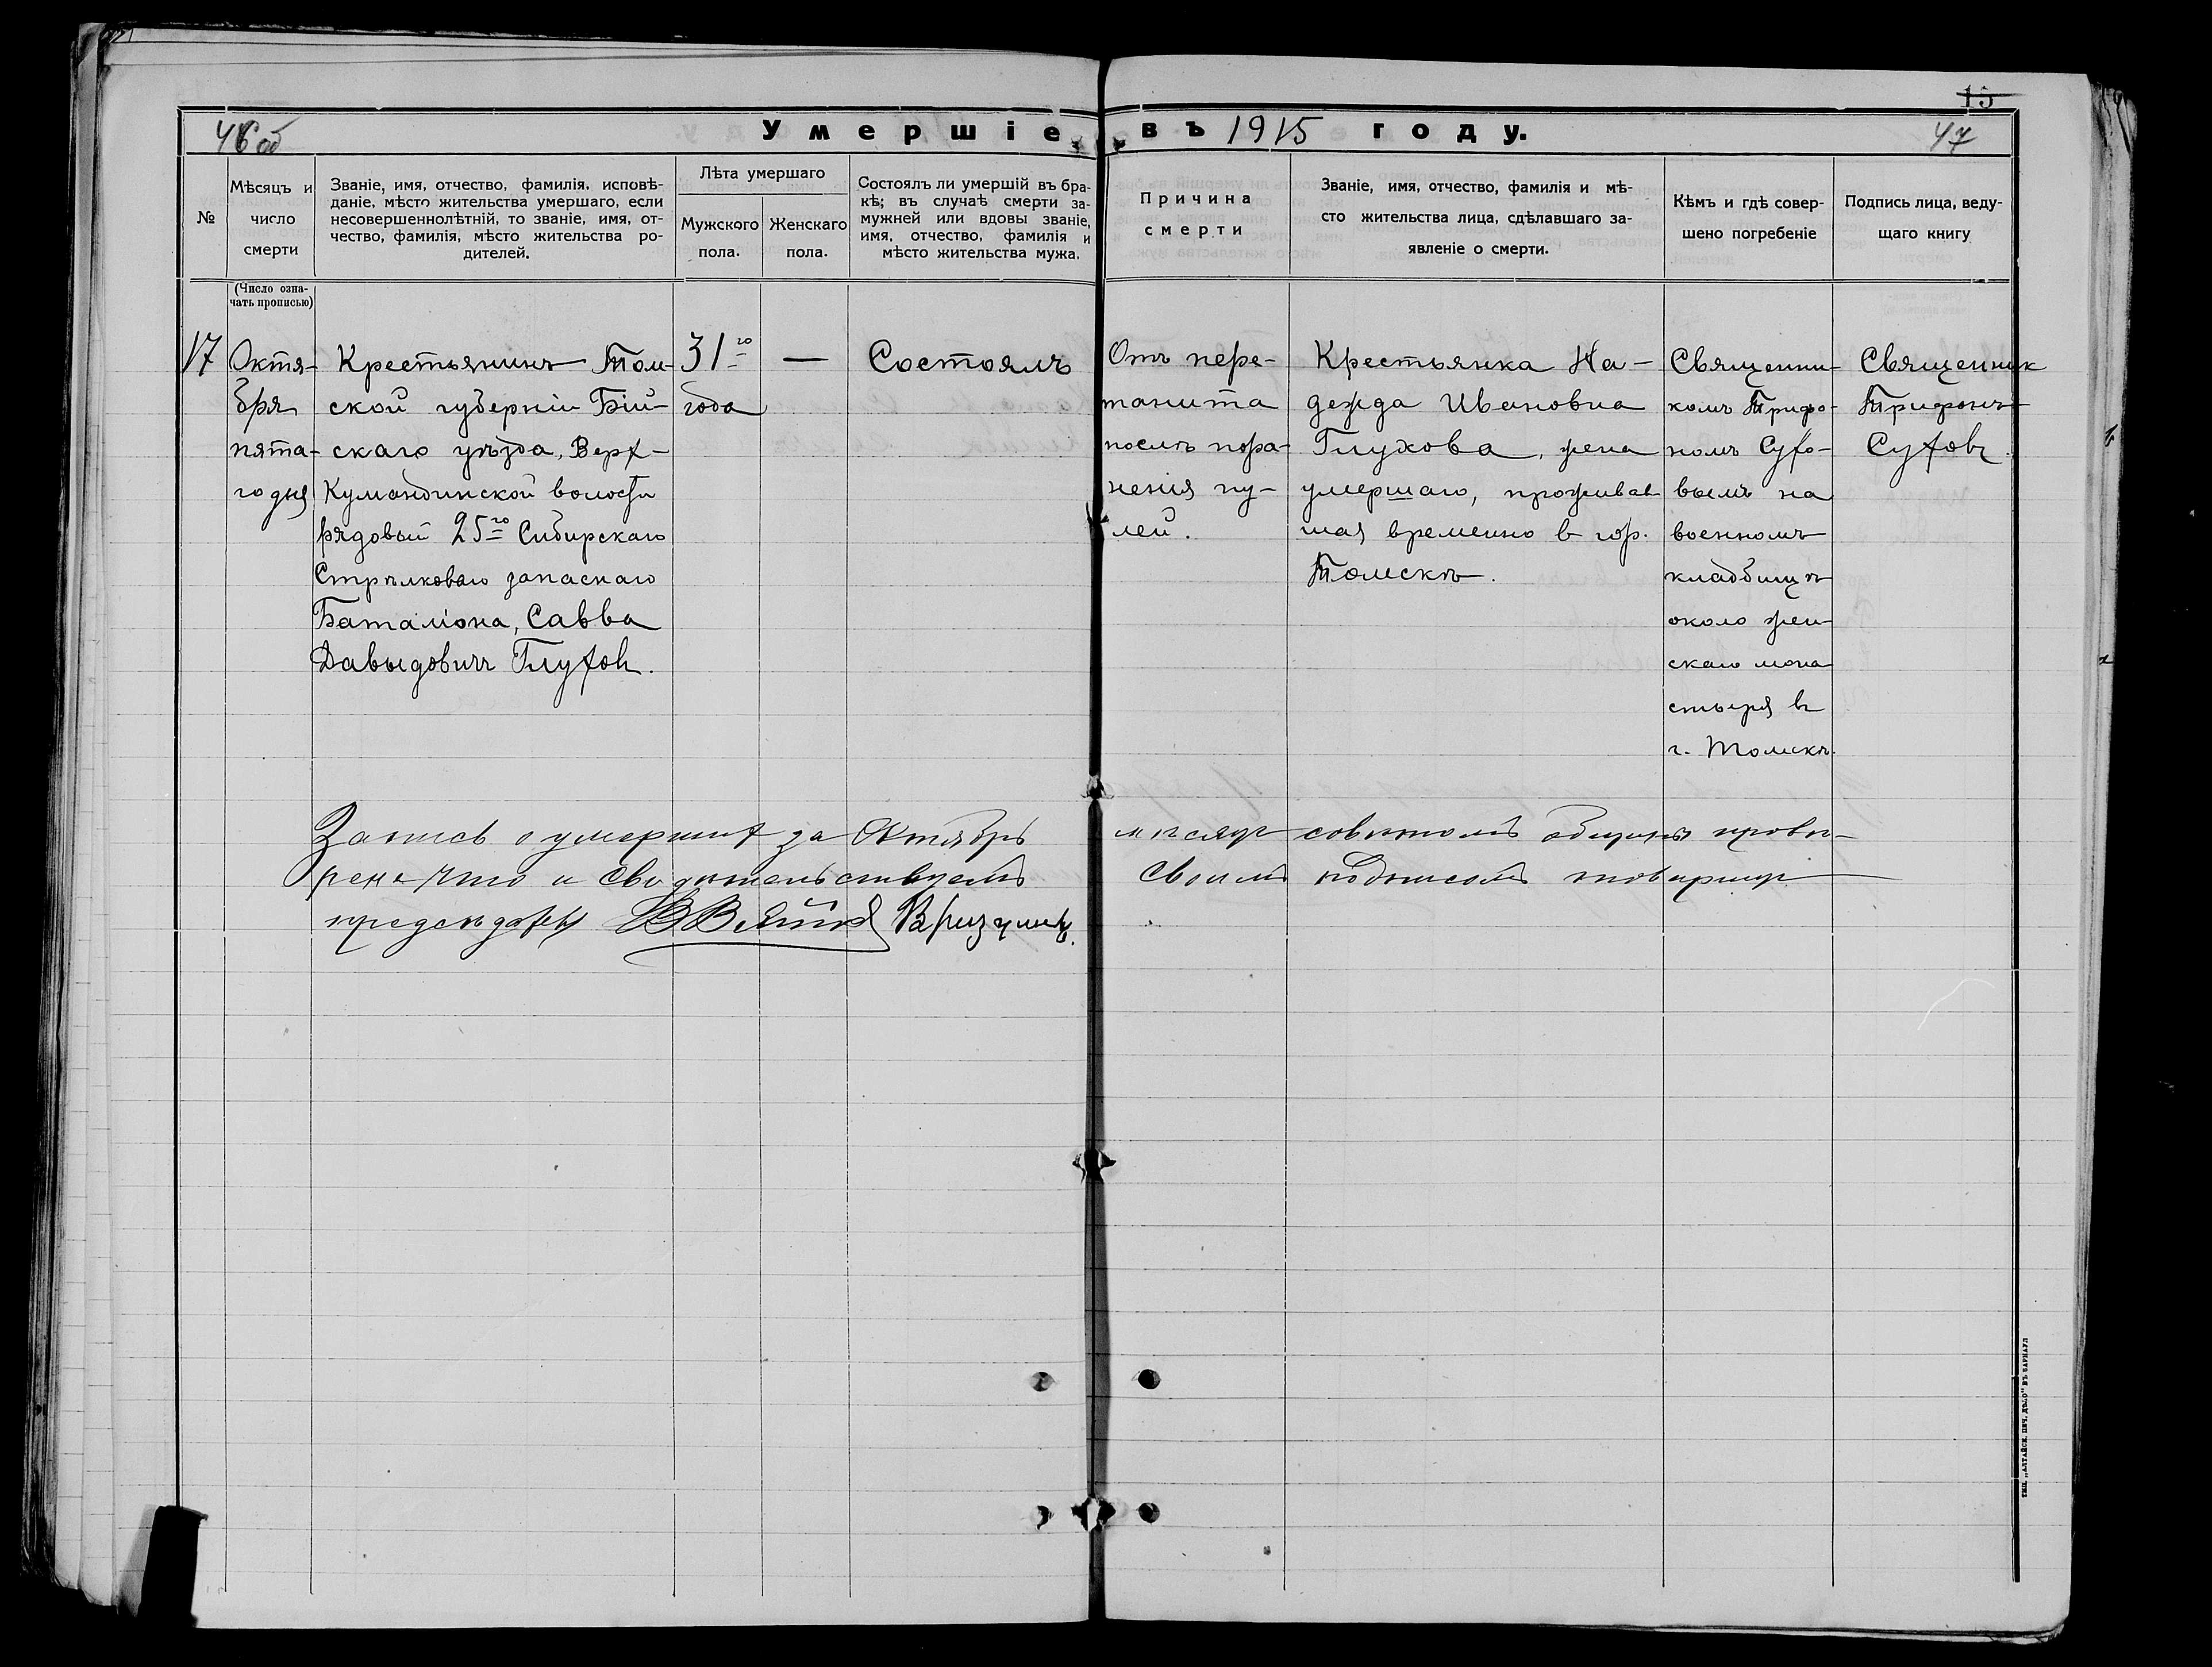 15
46об
Умершіе въ 1915 году.
47
№
Мѣсяцъ и
число
смерти
Званіе, имя, отчество, фамилія, исповѣ-
даніе, мѣсто жительства умершаго, если
несовершеннолѣтній, то званіе, имя, от-
чество, фамилія, мѣсто жительства ро-
дителей.
Лѣта умершаго
Мужского
пола.
Женскаго
пола.
Состоялъ ли умершій въ бра-
кѣ; въ случаѣ смерти за-
мужней или вдовы званіе,
имя, отчество, фамилія и
мѣсто жительства мужа.
Причина
смерти
Званіе, имя, отчество, фамилія и мѣ-
сто жительства лица, сдѣлавшаго за-
явленіе о смерти.
Кѣмъ и гдѣ совер-
шено погребеніе
Подпись лица, веду-
щаго книгу
(Число озна-
чать прописью)
17
Октя-
бря
пята-
го дня
Крестьянинъ Том-
ской губерніи Бій-
скаго уѣзда, Верх-
Кумандинской волости
рядовый 25го Сибирскаго
Стрѣлковаго запаснаго
Баталіона, Савва
Давыдовичъ Глуховъ.
31го
года
—
Состоялъ
Отъ пере-
тонита
послѣ пора-
ненія пу-
лей.
Крестьянка На-
дежда Ивановна
Глухова, жена
умершаго, проживав
шая временно въ гор.
Томскѣ.
Священни-
комъ Трифо-
номъ Сухо-
вымъ на
военномъ
кладбищѣ
около жен
скаго мона
стыря въ
г. Томскѣ.
Священник
Трифонъ
Суховъ
Запись о умершихъ за Октябрь мѣсяцъ совѣтомъ общины провѣ-
рена что и свидѣтельствуемъ своимъ подписомъ товарищъ
предсѣдателя
ТИП. „АЛТАЙСК. ПЕЧ. ДѢЛО" ВЪ БАРНАУЛ